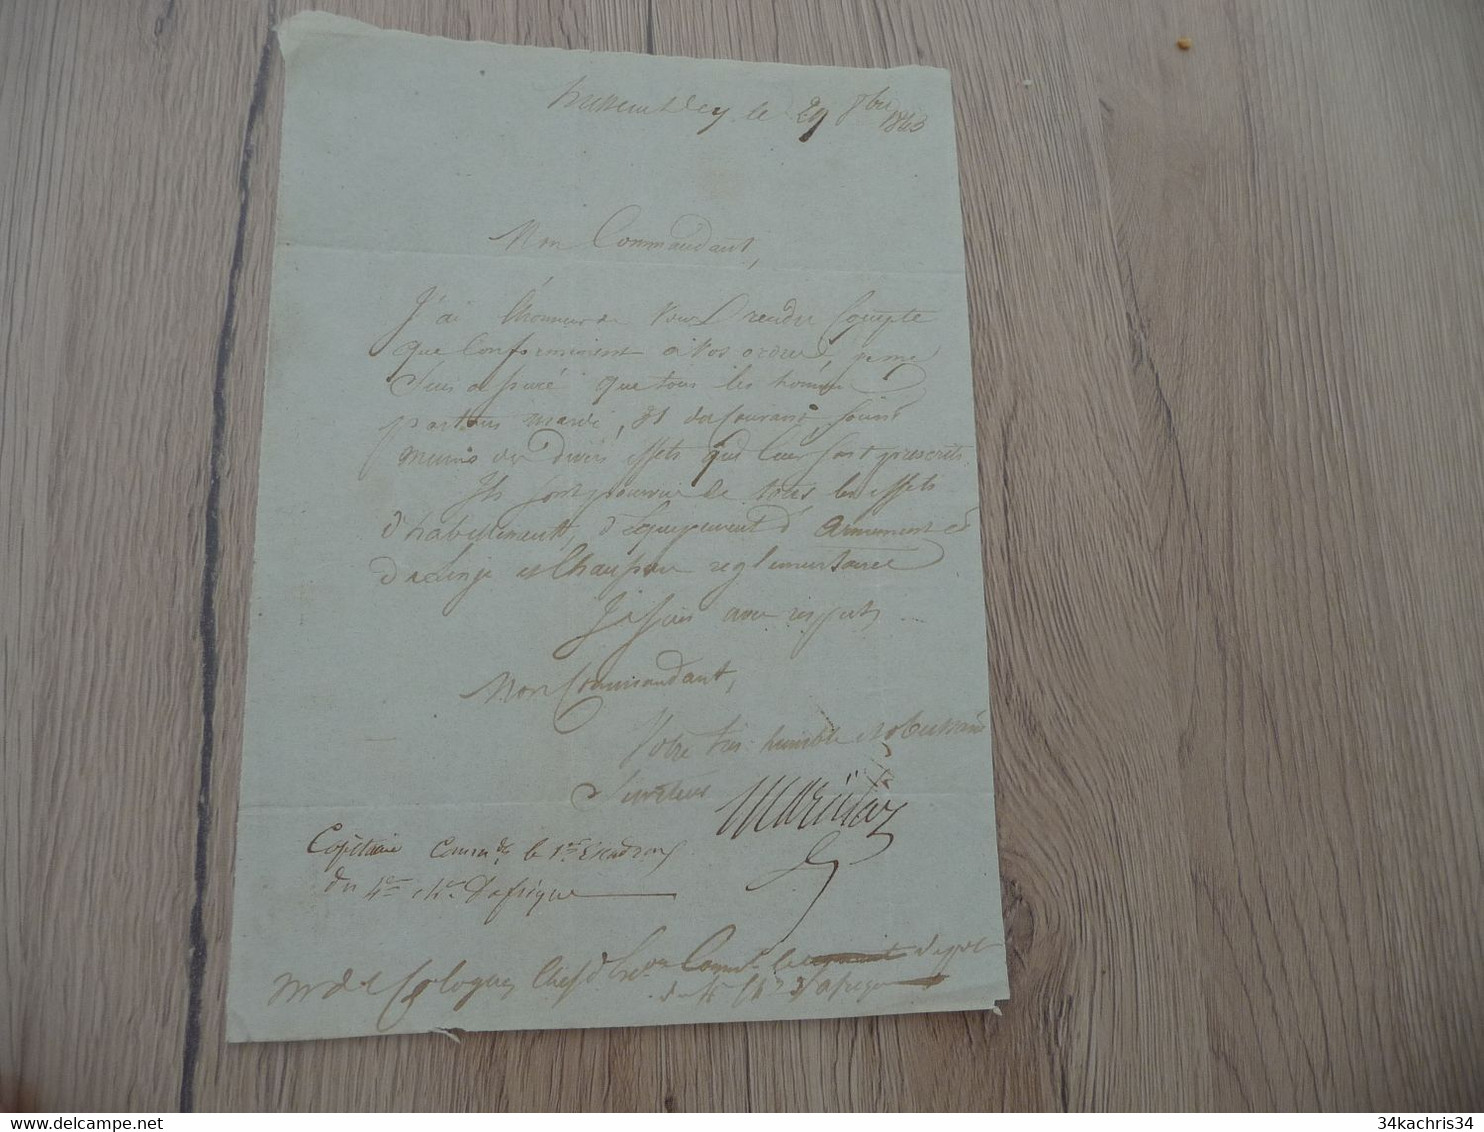 hussein dey le 29 8bre 1843
Mon Commandant,
J'ai l'honneur de vous rendre Compte
que Conformément à vos ordres, je me
suis assuré que tous les hommes
partans mardi, 31 du Courant, sont
munis des divers effets qui leur sont prescrits.
Ils sont pourvus de tous les effets
d'habillements, d'équipement d'Armement et
de linge et Chaussure réglementaires
Je suis avec respect
Mon Commandant,
Votre très humble et obéissant
Serviteur
Capitaine Commdt le 1er Escadron
du 4e chr d'afrique
Mr de Cologne, Chef d'Eson Commdt le régiment dépôt
du 4e Chr d'afrique
34kachris34